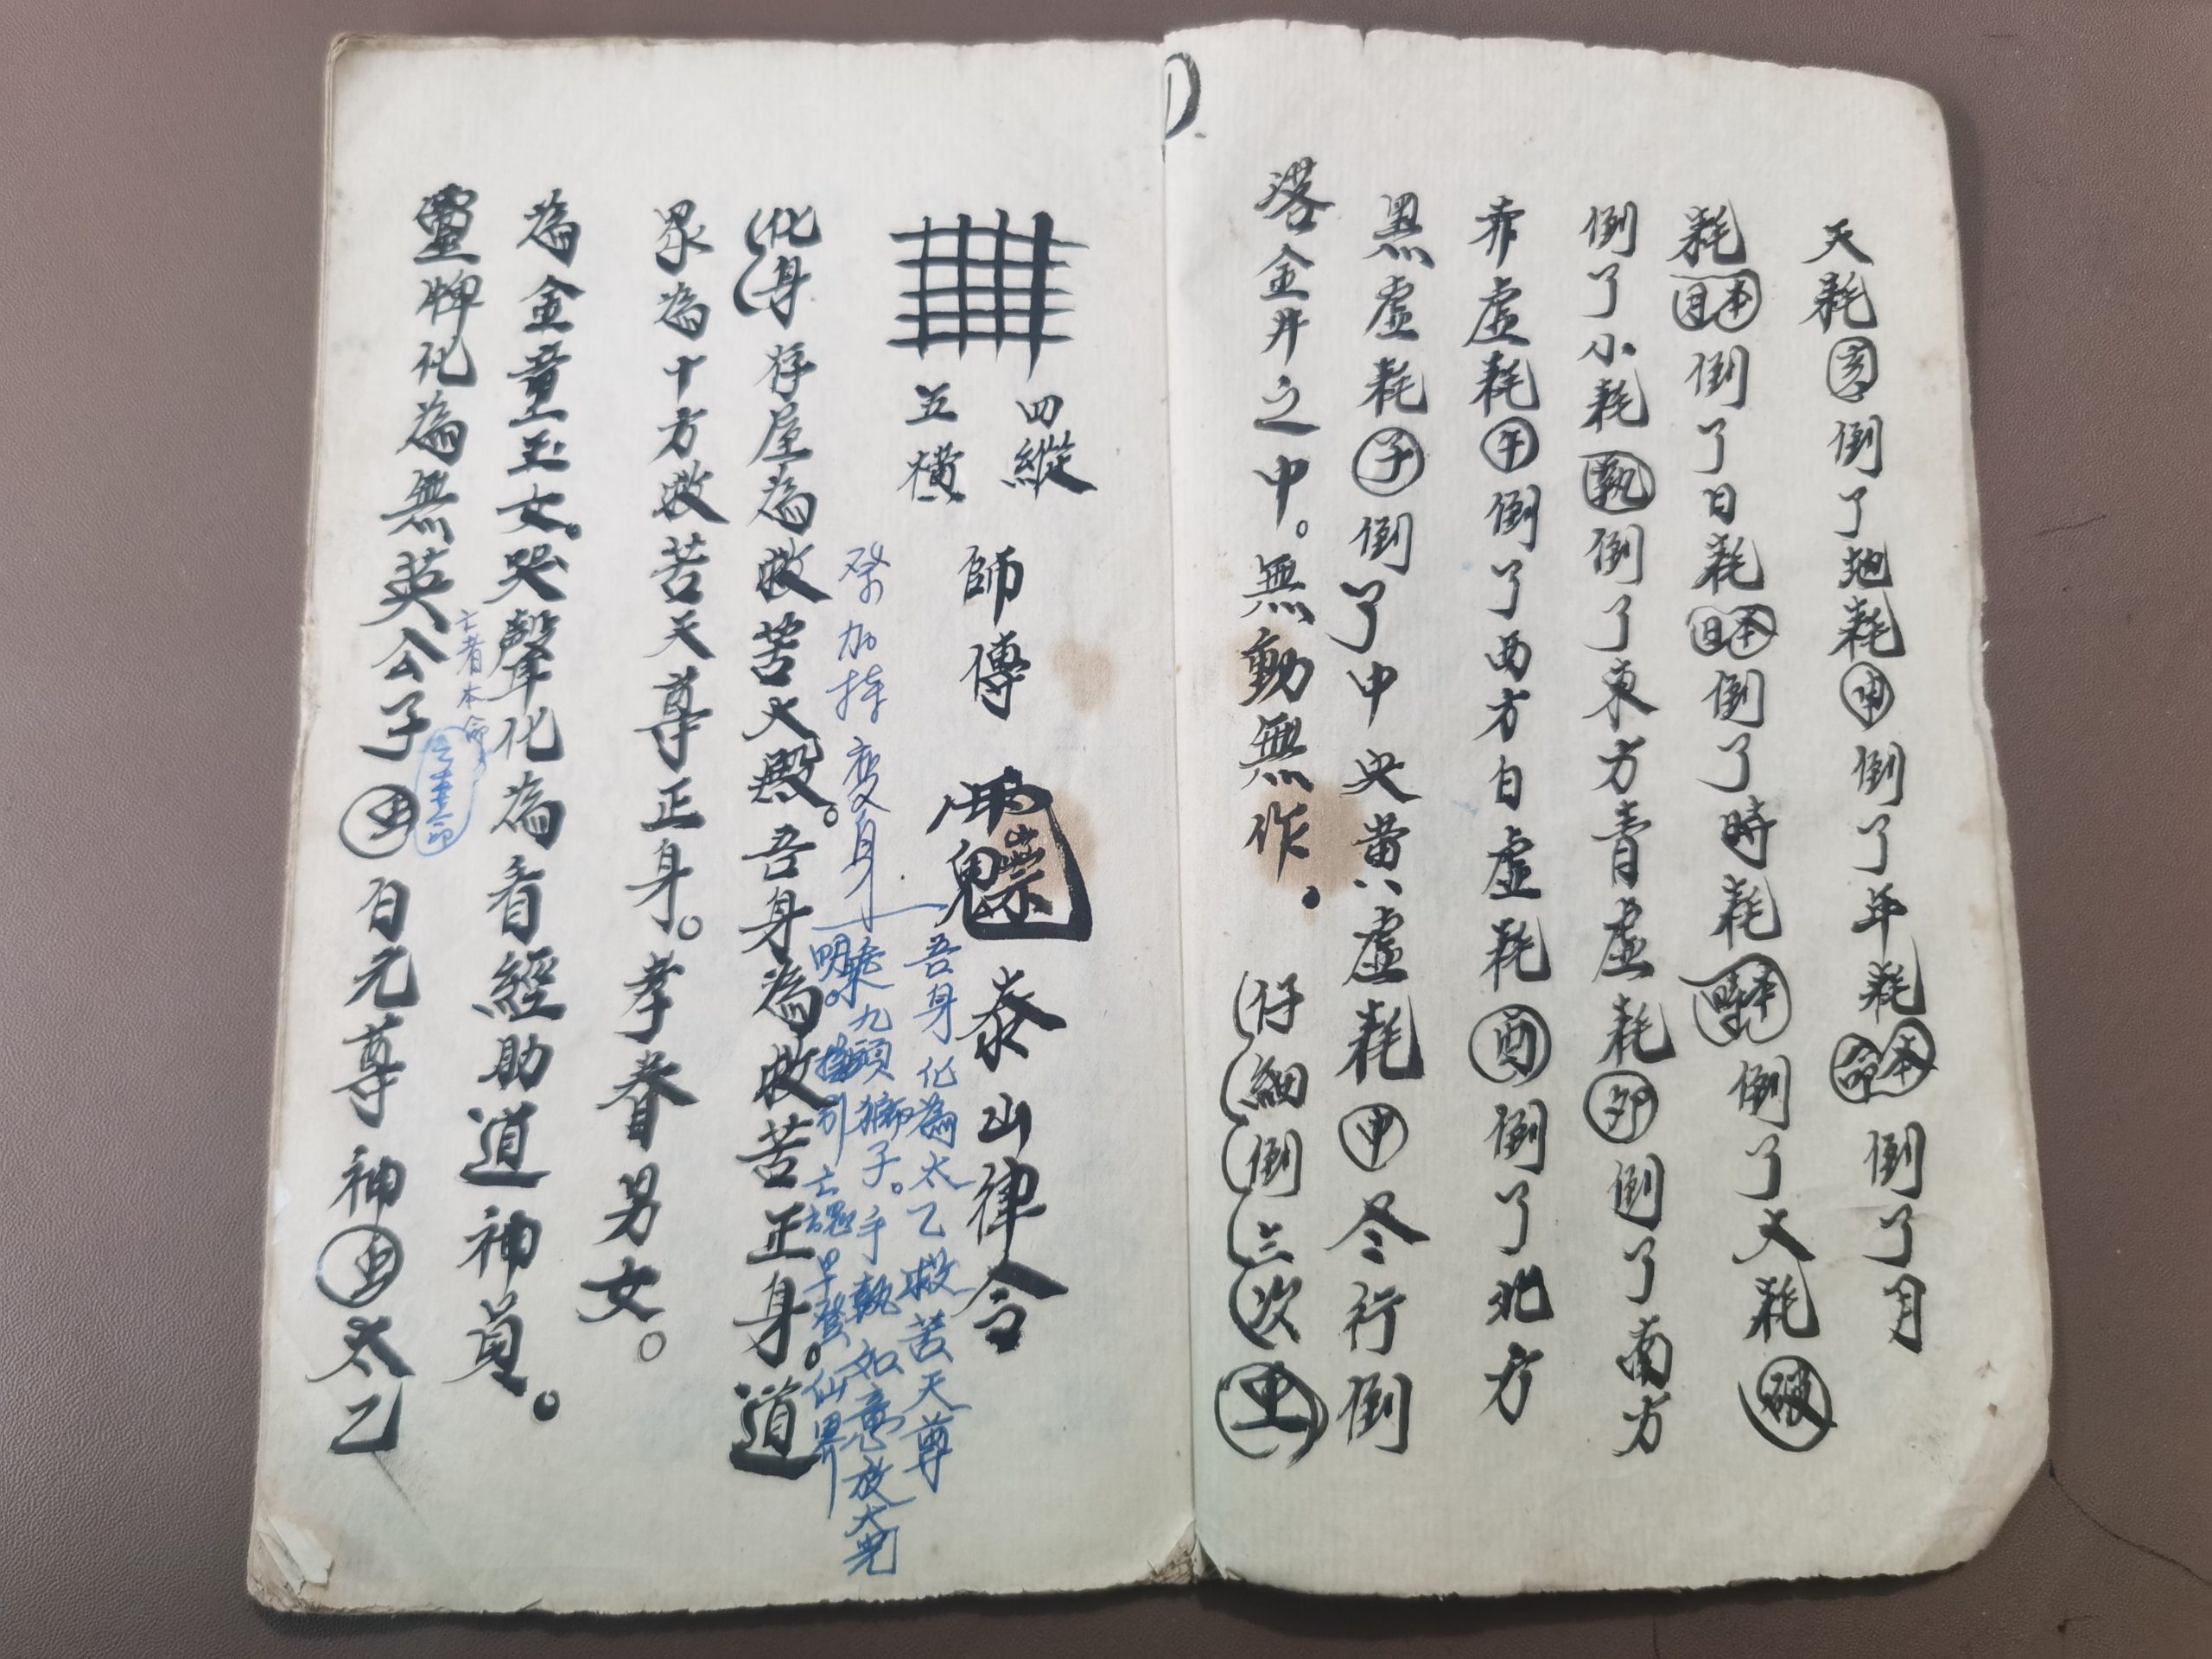 天耗亥倒了地耗申倒了年耗本命倒了月
耗本月倒了日耗本日倒了時耗本時倒了大耗破
倒了小耗執倒了東方青虛耗卯倒了南方
赤虛耗午倒了西方白虛耗酉倒了北方
黑虛耗子倒了中央黃虛耗中冬行倒
落金井之中。無動無作。仔細倒三次
四縱
五橫
師傳 泰山律令
吾身化為太乙救苦天尊
九頭獅子。手執如意放大光
明。接引亡魂早登仙界
祭加持變身
化身存屋為救苦大殿。吾身為救苦正身。道
眾為十方救苦天尊正身。孝眷男女。
為金童玉女。哭聲化為看經助道神員。
亡者本命
靈牌化為無英公子 白元尊神 太乙